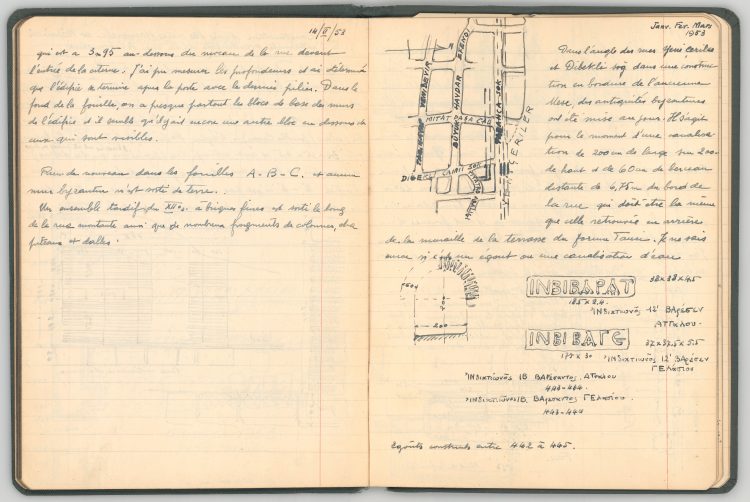 14/II/53
qui est a 3m95 au-dessous du niveau de la rue devant
l'entrée de la citerne. J'ai pu mesurer les profondeurs et ai déterminé
que l'édifice se termine apres la porte avec le dernier pilier. Dans le
fond de la fouille, on a presque partout les blocs de base des murs
de l'édifice et il semble qu'il y ait encore une autre bloc en dessous de
ceux qui sont visibles.
Rien de nouveau dans les fouilles A-B-C. et aucun
mur byzantin n'est sorti de terre.
Un ensemble tardif du XIIe s. à briques fines est sorti le long
de la rue montante ainsi que de nombreux fragments de colonnes, cha
piteaux et dalles.
Janv. Fev. Mars
1953
Dans l'angle des rues Yeni ceriler
et Dibekli soq dans une construction
en bordure de l'ancienne
Mese, des antiquités byzantines
ont été mises au jour. Il s'agit
pour le moment d'une canalisa
tion de 200 cm de large sur 200
de haut et de 60 cm de berceau
distante de 6,75 m du bord de
la rue qui doit être la même
que celle retrouvée en arrière
de la muraille de la terrasse du forum Tauri. Je ne sais
encore si c'est un egout ou une canalisation d'eau
YENİ DEVİR
HAYDAR
BÜYÜK
MITAT PASA CAD
CAMII SOK
YENİÇERİLER
200
200
INBIBAPAT
38 x 38 x 4.5
INBIBAΓG
37 x 37.5 x 5.5
443-444
Egoûts construits entre 442 à 445.